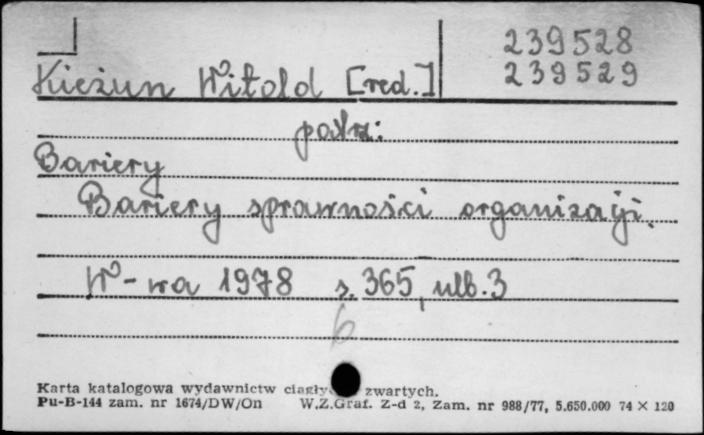 239528
Kieżun Witold [red.] 239529
patrz:
Bariery
Bariery sprawności organizacji.
W-wa 1978 s. 365, nlb. 3
6
Karta katalogowa wydawnictw zwartych.
Pu-B-144 zam. nr 1674/DW/On W.Z.Graf. Z-d 2, Zam. nr 988/77, 5.650.000 74 × 120